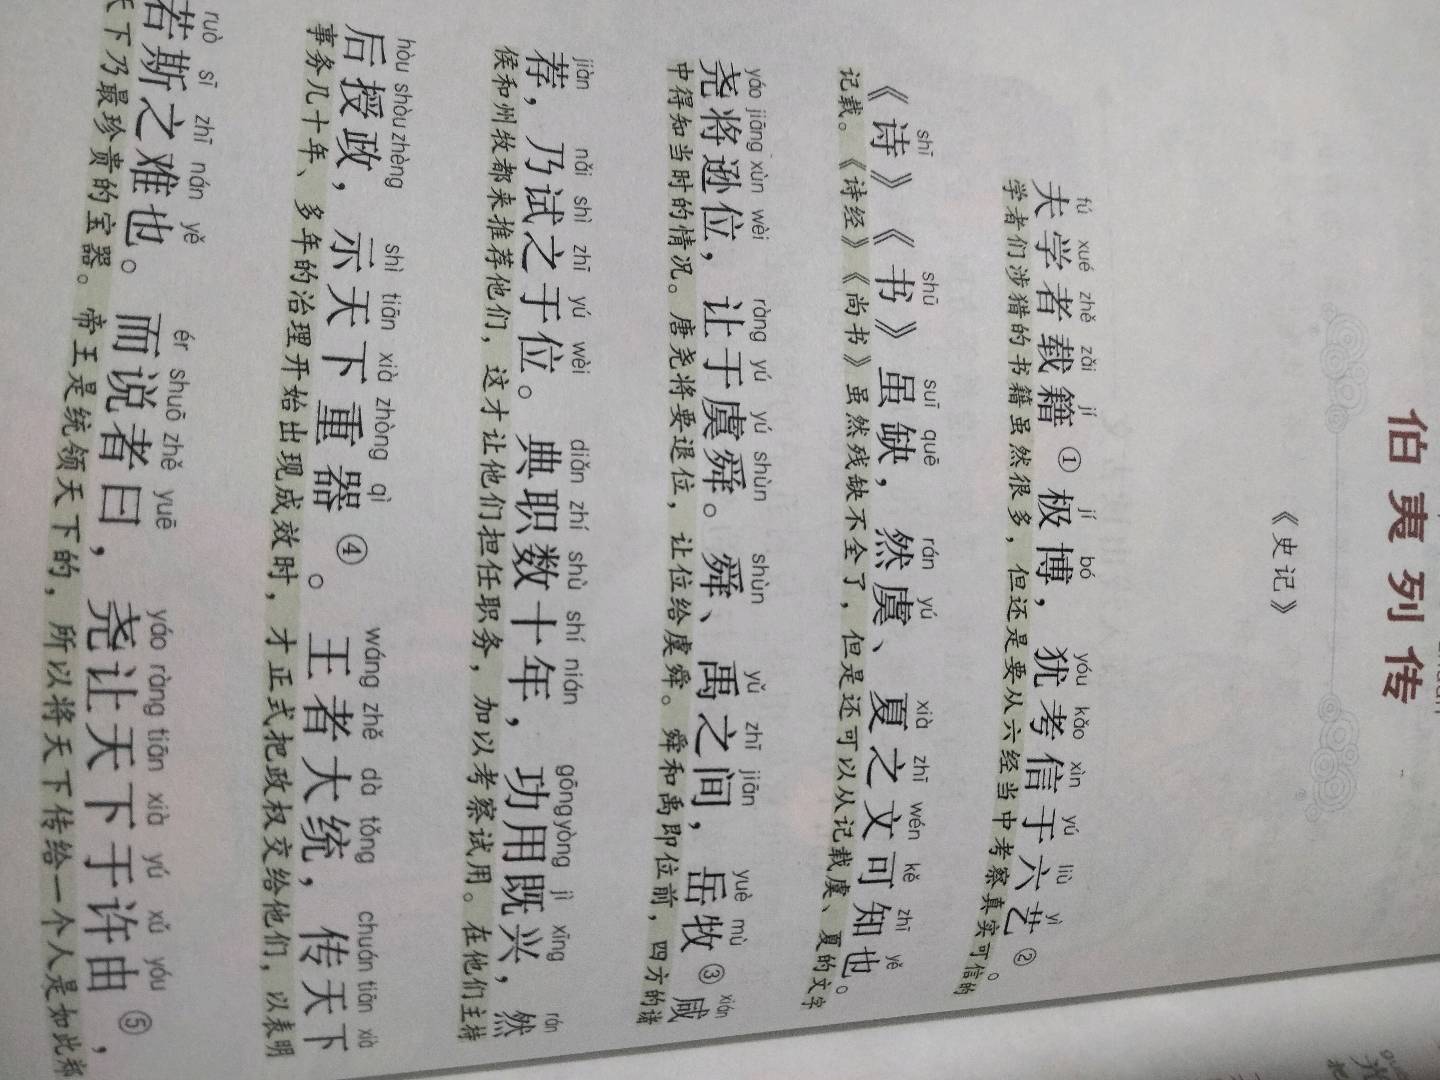 伯夷列传
《史记》
fú xué zhě zǎi jí jí bó yóu kǎo xìn yú liù yì
夫学者载籍①极博，犹考信于六艺②。
学者们涉猎的书籍虽然很多，但还是要从六经当中考察真实可信的
shī shū suī quē rán yú xià zhī wén kě zhī yě
《诗》《书》虽缺，然虞、夏之文可知也。
记载。《诗经》《尚书》虽然残缺不全了，但是还可以从记载虞、夏的文字
yáo jiāng xùn wèi ràng yú yú shùn shùn yǔ zhī jiān yuè mù xián
尧将逊位，让于虞舜。舜、禹之间，岳牧③咸
中得知当时的情况。唐尧将要退位，让位给虞舜。舜和禹即位前，四方的诸
jiàn nǎi shì zhī yú wèi diǎn zhí shù shí nián gōng yòng jì xīng rán
荐，乃试之于位。典职数十年，功用既兴，然
侯和州牧都来推荐他们，这才让他们担任职务，加以考察试用。在他们主持
hòu shòu zhèng shì tiān xià zhòng qì wáng zhě dà tǒng chuán tiān xià
后授政，示天下重器④。王者大统，传天下
事务几十年、多年的治理开始出现成效时，才正式把政权交给他们，以表明
ruò sī zhī nán yě ér shuō zhě yuē yáo ràng tiān xià yú xǔ yóu
若斯之难也。而说者曰，尧让天下于许由⑤，
天下乃最珍贵的宝器。帝王是统领天下的，所以将天下传给一个人是如此郑